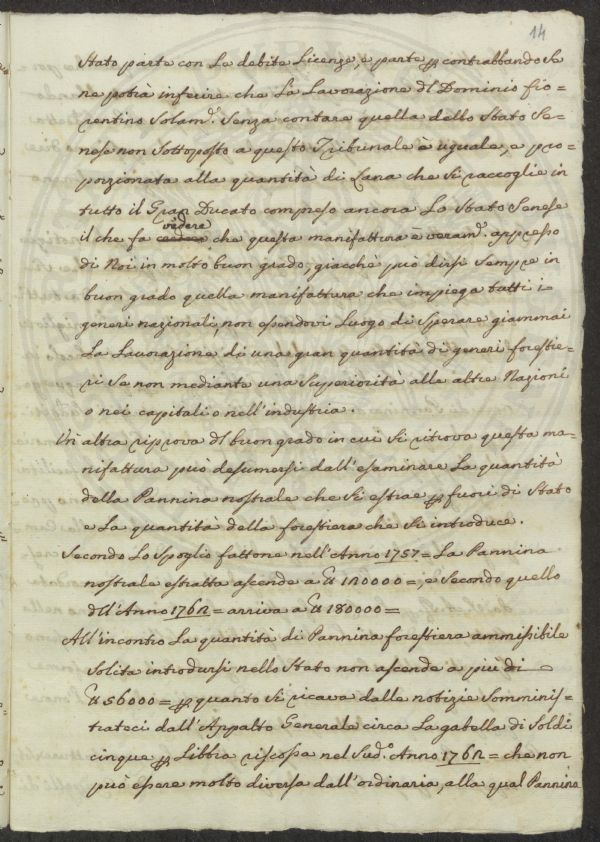 14
Stato parte con Le debite Licenze, e parte p contrabbando Se
ne potrà inferire che La Lavorazione dl Dominio fio=
rentino Solam.e Senza contare quella dello Stato Se=
nese non Sottoposto a questo Tribunale è uguale, e pro=
porzionata alla quantità di Lana che Si raccoglie in
tutto il Gran Ducato compreso ancora Lo Stato Senese
vedere
il che fa che questa manifattura è veram.e appresso
di Noi in molto buon grado, giacchè può dirsi Sempre in
buon grado quella manifattura che impiega tutti i
generi nazionali, non essendovi Luogo di Sperare giammai
La Lavorazione di una gran quantità di generi forestie=
ri Se non mediante una Superiorità alle altre Nazioni
o nei capitali o nell'industria.
Un altra riprova dl buon grado in cui Si ritrova questa ma=
nifattura può desumersi dall'esaminare La quantità
della Pannina nostrale che Si estrae p fuori di Stato
e La quantità della forestiera che Si introduce.
Secondo Lo Spoglio fattone nell'Anno 1757= La Pannina
nostrale estratta ascende a 120000=, e Secondo quello
dll'Anno 1762= arriva a 180000=
All'incontro La quantità di Pannina forestiera ammissibile
Solita introdursi nello Stato non ascende a più di
56000= p quanto Si ricava dalle notizie Somminis=
trateci dall'Appalto Generale circa La gabella di Soldi
cinque p Libbra riscossa nel Sud.o Anno 1762= che non
può essere molto diversa dall'ordinaria, alla qual Pannina